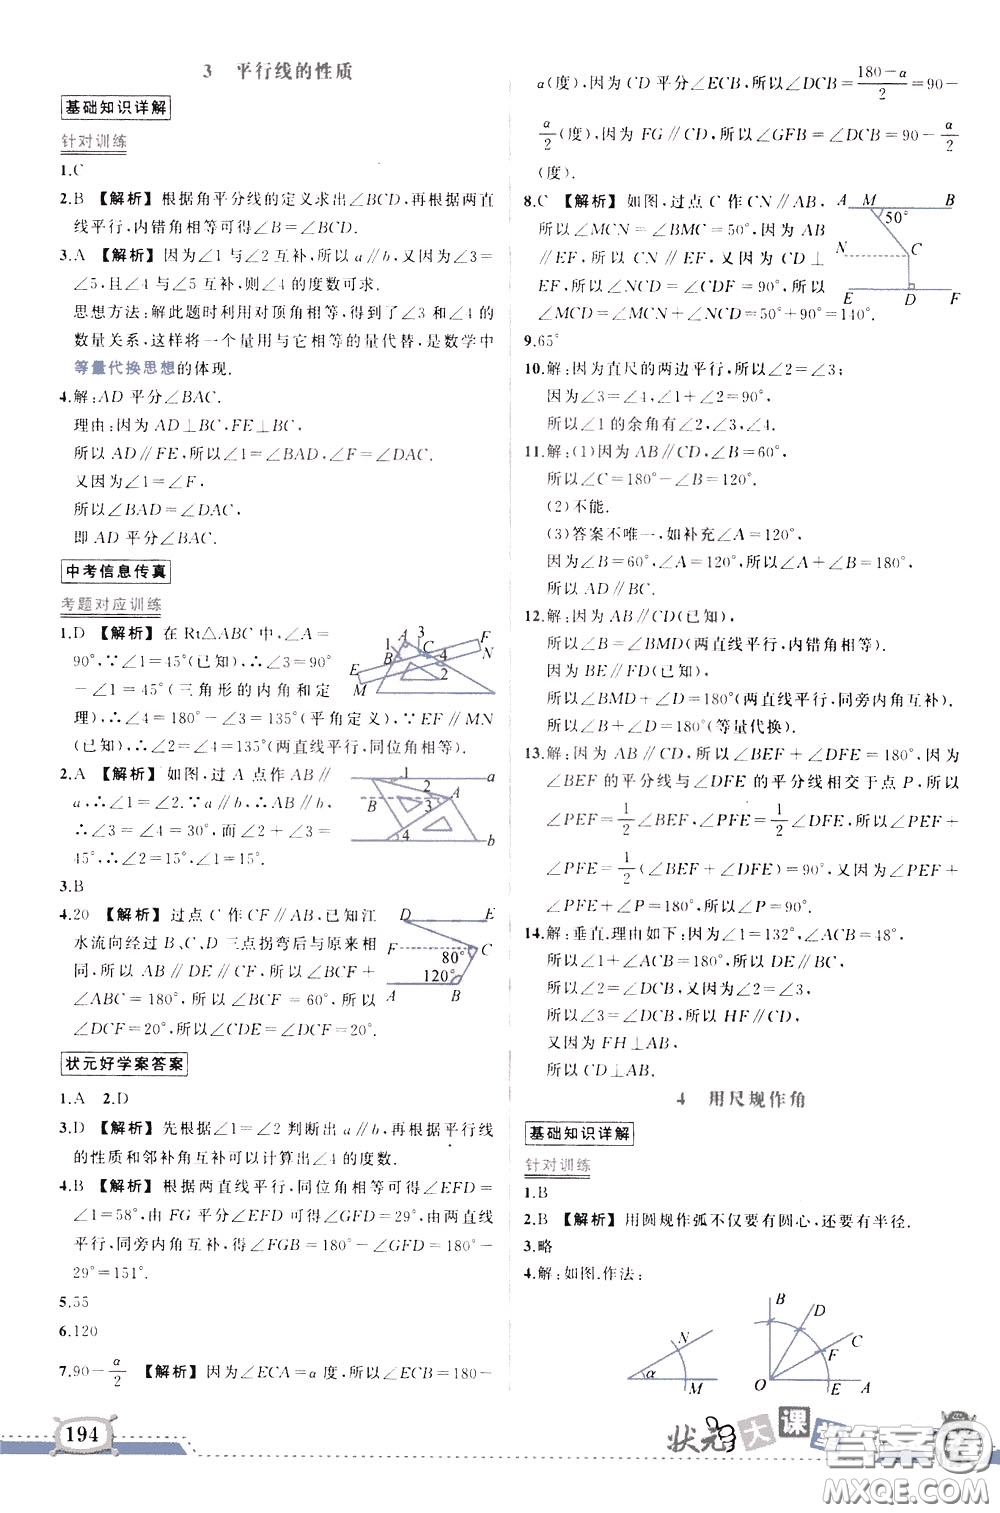 3 平行线的性质
基础知识详解
针对训练
1.C
2.B 【解析】根据角平分线的定义求出∠BCD,再根据两直
线平行,内错角相等可得∠B=∠BCD.
3.A 【解析】因为∠1与∠2互补,所以a∥b,又因为∠3=
∠5,且∠4与∠5互补,则∠4的度数可求.
思想方法:解此题时利用对顶角相等,得到了∠3和∠4的
数量关系,这样将一个量用与它相等的量代替,是数学中
等量代换思想的体现.
4.解:AD平分∠BAC.
理由:因为AD⊥BC,FE⊥BC,
所以AD∥FE,所以∠1=∠BAD,∠F=∠DAC.
又因为∠1=∠F,
所以∠BAD=∠DAC,
即AD平分∠BAC.
中考信息传真
考题对应训练
1.D 【解析】在Rt△ABC中,∠A=
90°,∵∠1=45°(已知),∴∠3=90°
-∠1=45°(三角形的内角和定
理),∴∠4=180°-∠3=135°(平角定义),∵EF∥MN
(已知),∴∠2=∠4=135°(两直线平行,同位角相等).
A 3 F
1 B C 4 N
E 2
M
2.A 【解析】如图,过A点作AB∥
a,∴∠1=∠2.∵a∥b,∴AB∥b,
∴∠3=∠4=30°,而∠2+∠3=
45°,∴∠2=15°,∴∠1=15°.
1 a
2
B 3 A
4 b
3.B
4.20 【解析】过点C作CF∥AB,已知江
水流向经过B、C、D三点拐弯后与原来相
同,所以AB∥DE∥CF,所以∠BCF+
∠ABC=180°,所以∠BCF=60°,所以
∠DCF=20°,所以∠CDE=∠DCF=20°.
D E
F C
80°
120°
A B
状元好学案答案
1.A 2.D
3.D 【解析】先根据∠1=∠2判断出a∥b,再根据平行线
的性质和邻补角互补可以计算出∠4的度数.
4.B 【解析】根据两直线平行,同位角相等可得∠EFD=
∠1=58°,由FG平分∠EFD可得∠GFD=29°,由两直线
平行,同旁内角互补,得∠FGB=180°-∠GFD=180°-
29°=151°.
5.55
6.120
7.90-α/2 【解析】因为∠ECA=α度,所以∠ECB=180-
194
α(度),因为CD平分∠ECB,所以∠DCB=(180-α)/2=90-
α/2(度),因为FG∥CD,所以∠GFB=∠DCB=90-α/2
(度).
8.C 【解析】如图,过点C作CN∥AB,
所以∠MCN=∠BMC=50°,因为AB
∥EF,所以CN∥EF,又因为CD⊥
EF,所以∠NCD=∠CDF=90°,所以
∠MCD=∠MCN+∠NCD=50°+90°=140°.
A M B
50°
N C
E D F
9.65°
10.解:因为直尺的两边平行,所以∠2=∠3;
因为∠3=∠4,∠1+∠2=90°,
所以∠1的余角有∠2,∠3,∠4.
11.解:(1)因为AB∥CD,∠B=60°,
所以∠C=180°-∠B=120°.
(2)不能.
(3)答案不唯一,如补充∠A=120°,
因为∠B=60°,∠A=120°,所以∠A+∠B=180°,
所以AD∥BC.
12.解:因为AB∥CD(已知),
所以∠B=∠BMD(两直线平行,内错角相等).
因为BE∥FD(已知),
所以∠BMD+∠D=180°(两直线平行,同旁内角互补).
所以∠B+∠D=180°(等量代换).
13.解:因为AB∥CD,所以∠BEF+∠DFE=180°,因为
∠BEF的平分线与∠DFE的平分线相交于点P,所以
∠PEF=1/2∠BEF,∠PFE=1/2∠DFE,所以∠PEF+
∠PFE=1/2(∠BEF+∠DFE)=90°,又因为∠PEF+
∠PFE+∠P=180°,所以∠P=90°.
14.解:垂直.理由如下:因为∠1=132°,∠ACB=48°,
所以∠1+∠ACB=180°,所以DE∥BC,
所以∠2=∠DCB,又因为∠2=∠3,
所以∠3=∠DCB,所以HF∥CD,
又因为FH⊥AB,
所以CD⊥AB.
4 用尺规作角
基础知识详解
针对训练
1.B
2.B 【解析】用圆规作弧不仅要有圆心,还要有半径.
3.略
4.解:如图.作法:
N
α
M
B D
C
F
O E A
状元大课堂
答案圈
MXQE.COM